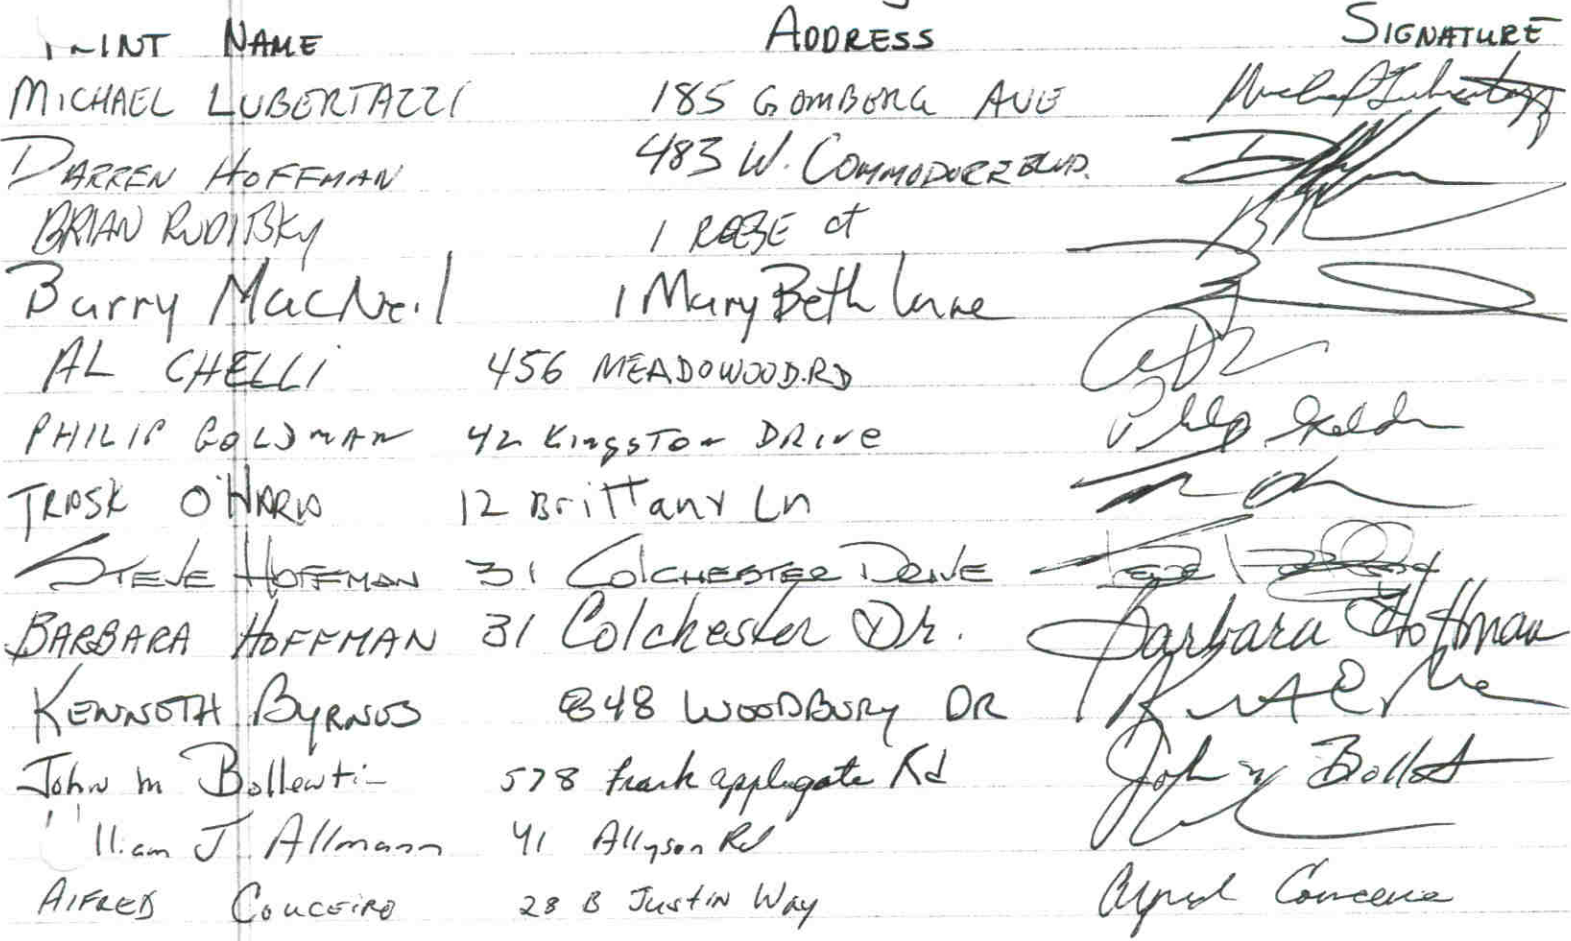 PRINT NAME ADDRESS SIGNATURE
MICHAEL LUBERTAZZI 185 GOMBERG AVE
DARREN HOFFMAN 483 W. COMMODORE BLVD.
BRIAN RUDIBSKY 1 REESE ct
Barry MacNeil 1 Mary Beth Lane
AL CHELLI 456 MEADOWOOD.RD
PHILIP GOLDMAN 42 KINGSTON DRIVE Philip
TRASK O'HARA 12 Brittany Ln
STEVE HOFFMAN 31 COLCHESTER DRIVE
BARBARA HOFFMAN 31 Colchester Dr. Barbara Hoffman
KENNETH BYRNES 848 WOODBURY DR
John M 578 Frank applegate Rd John M
lliam J Allmann 41 Allyson Rd
AlFRED COUCEIRO 28 B JUSTIN Way